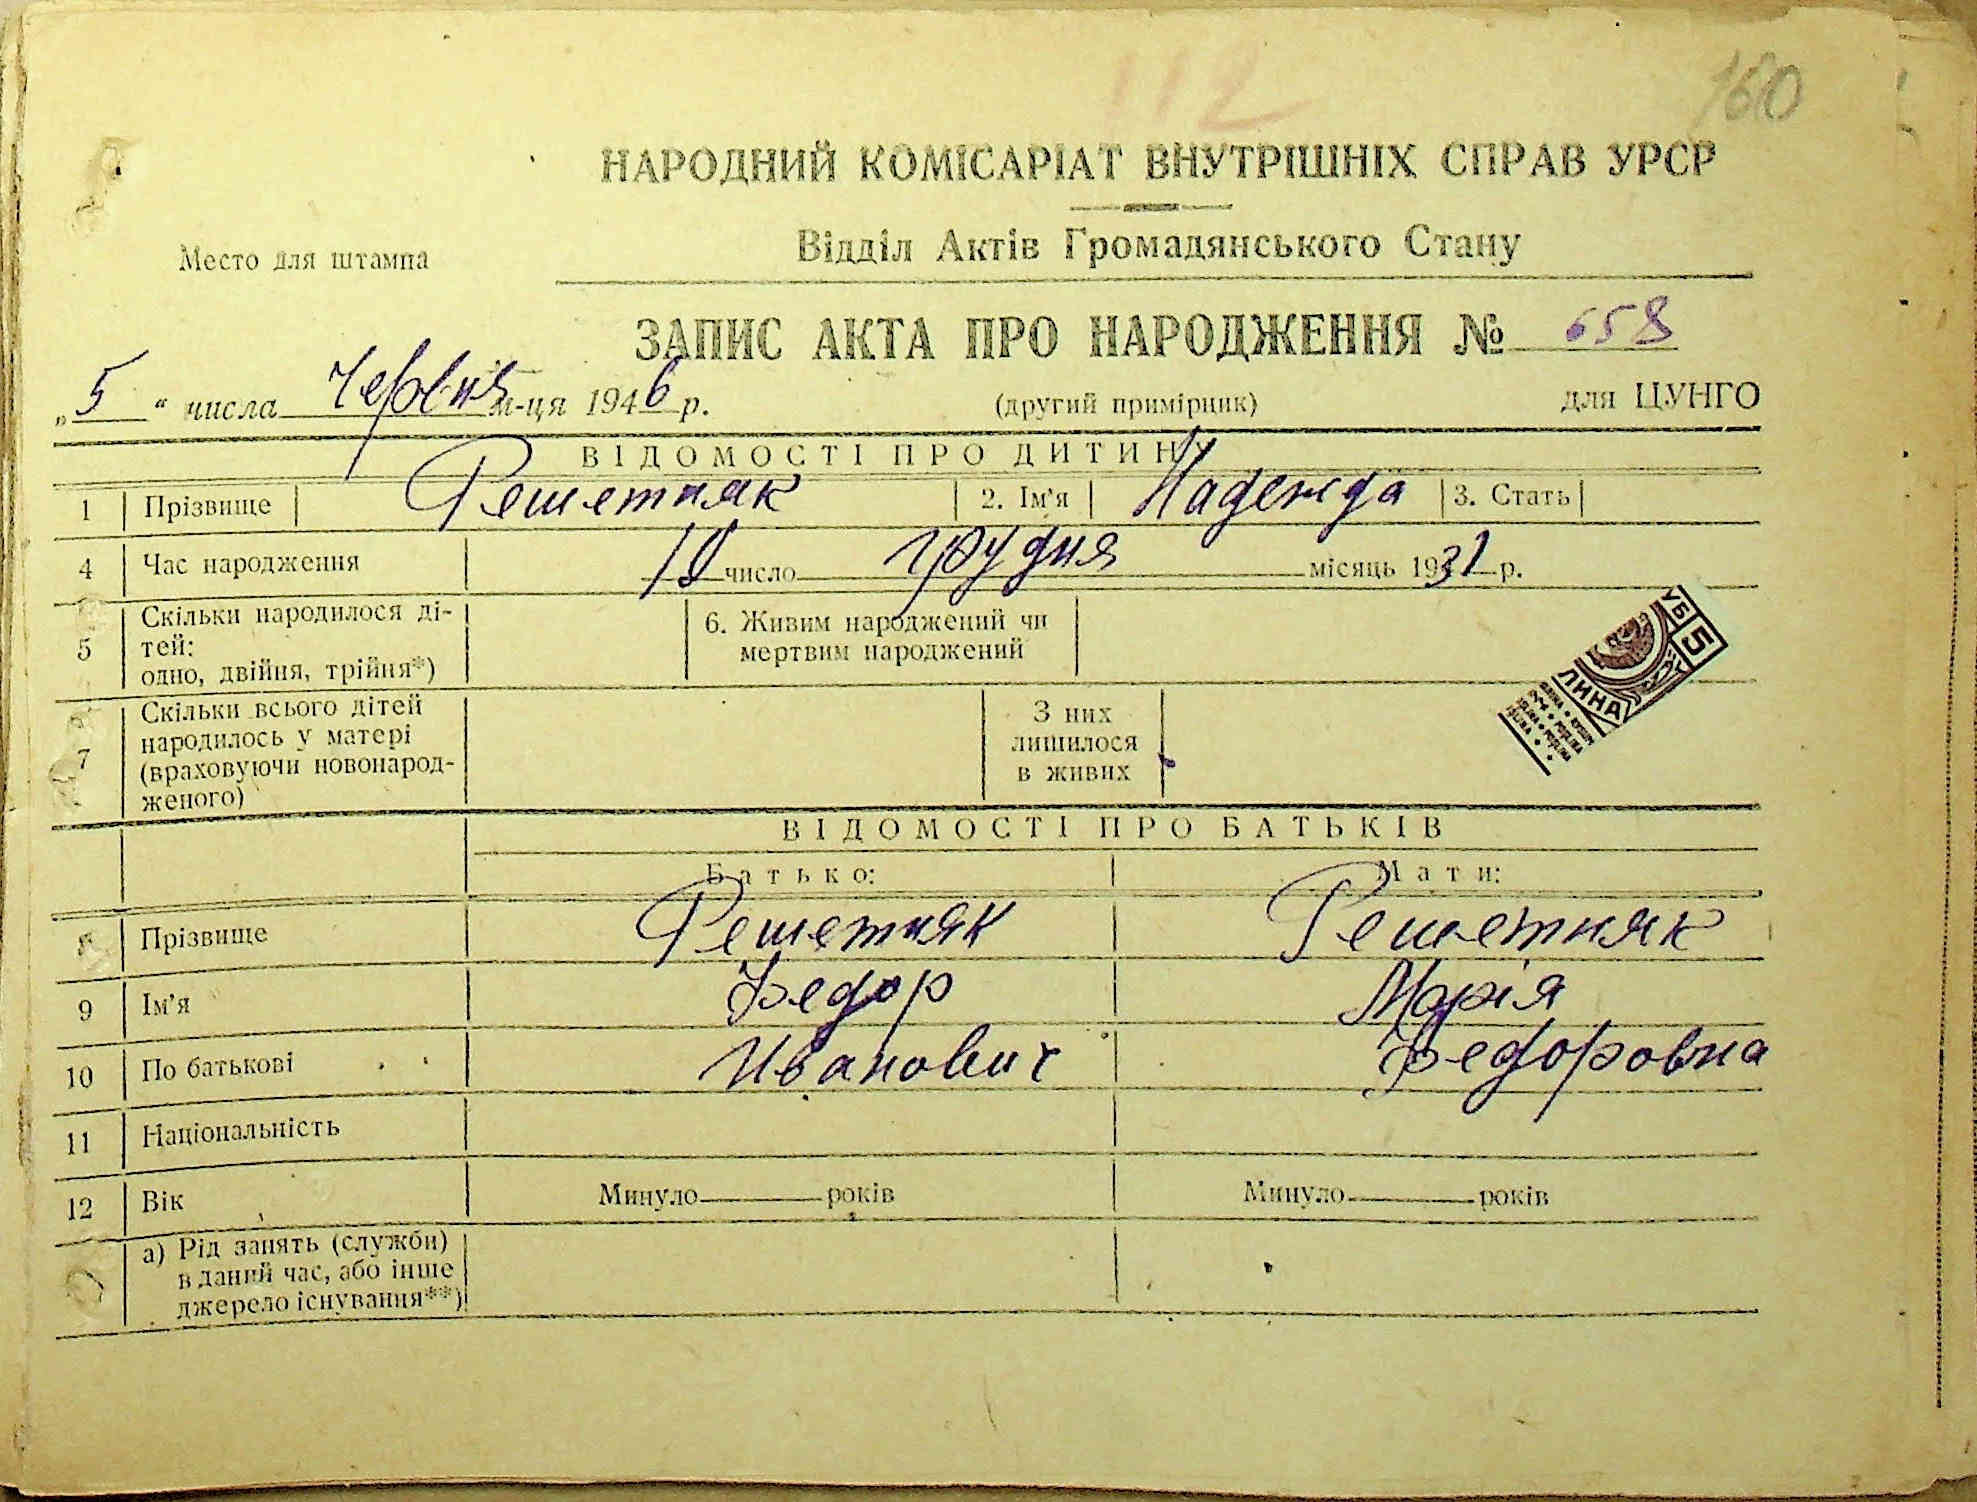 112
160
НАРОДНИЙ КОМІСАРІАТ ВНУТРІШНІХ СПРАВ УРСР
Место для штампа
Відділ Актів Громадянського Стану
ЗАПИС АКТА ПРО НАРОДЖЕННЯ № 658
„5“ числа Червня м-ця 1946 р.
(другий примірник) для ЦУНГО
ВІДОМОСТІ ПРО ДИТИНУ
1 Прізвище Решетняк 2. Ім'я Надежда 3. Стать
4 Час народження 10 число грудня місяць 1931 р.
5 Скільки народилося ді-
тей:
одно, двійня, трійня*)
6. Живим народжений чи
мертвим народжений
7 Скільки всього дітей
народилось у матері
(враховуючи новонарод-
женого)
З них
лишилося
в живих
5
ВІДОМОСТІ ПРО БАТЬКІВ
Батько: Мати:
Прізвище Решетняк Решетняк
9 Ім'я Федор Марія
10 По батькові Иванович Федоровна
11 Національність
12 Вік Минуло років Минуло років
а) Рід занять (служби)
в даний час, або інше
джерело існування**)